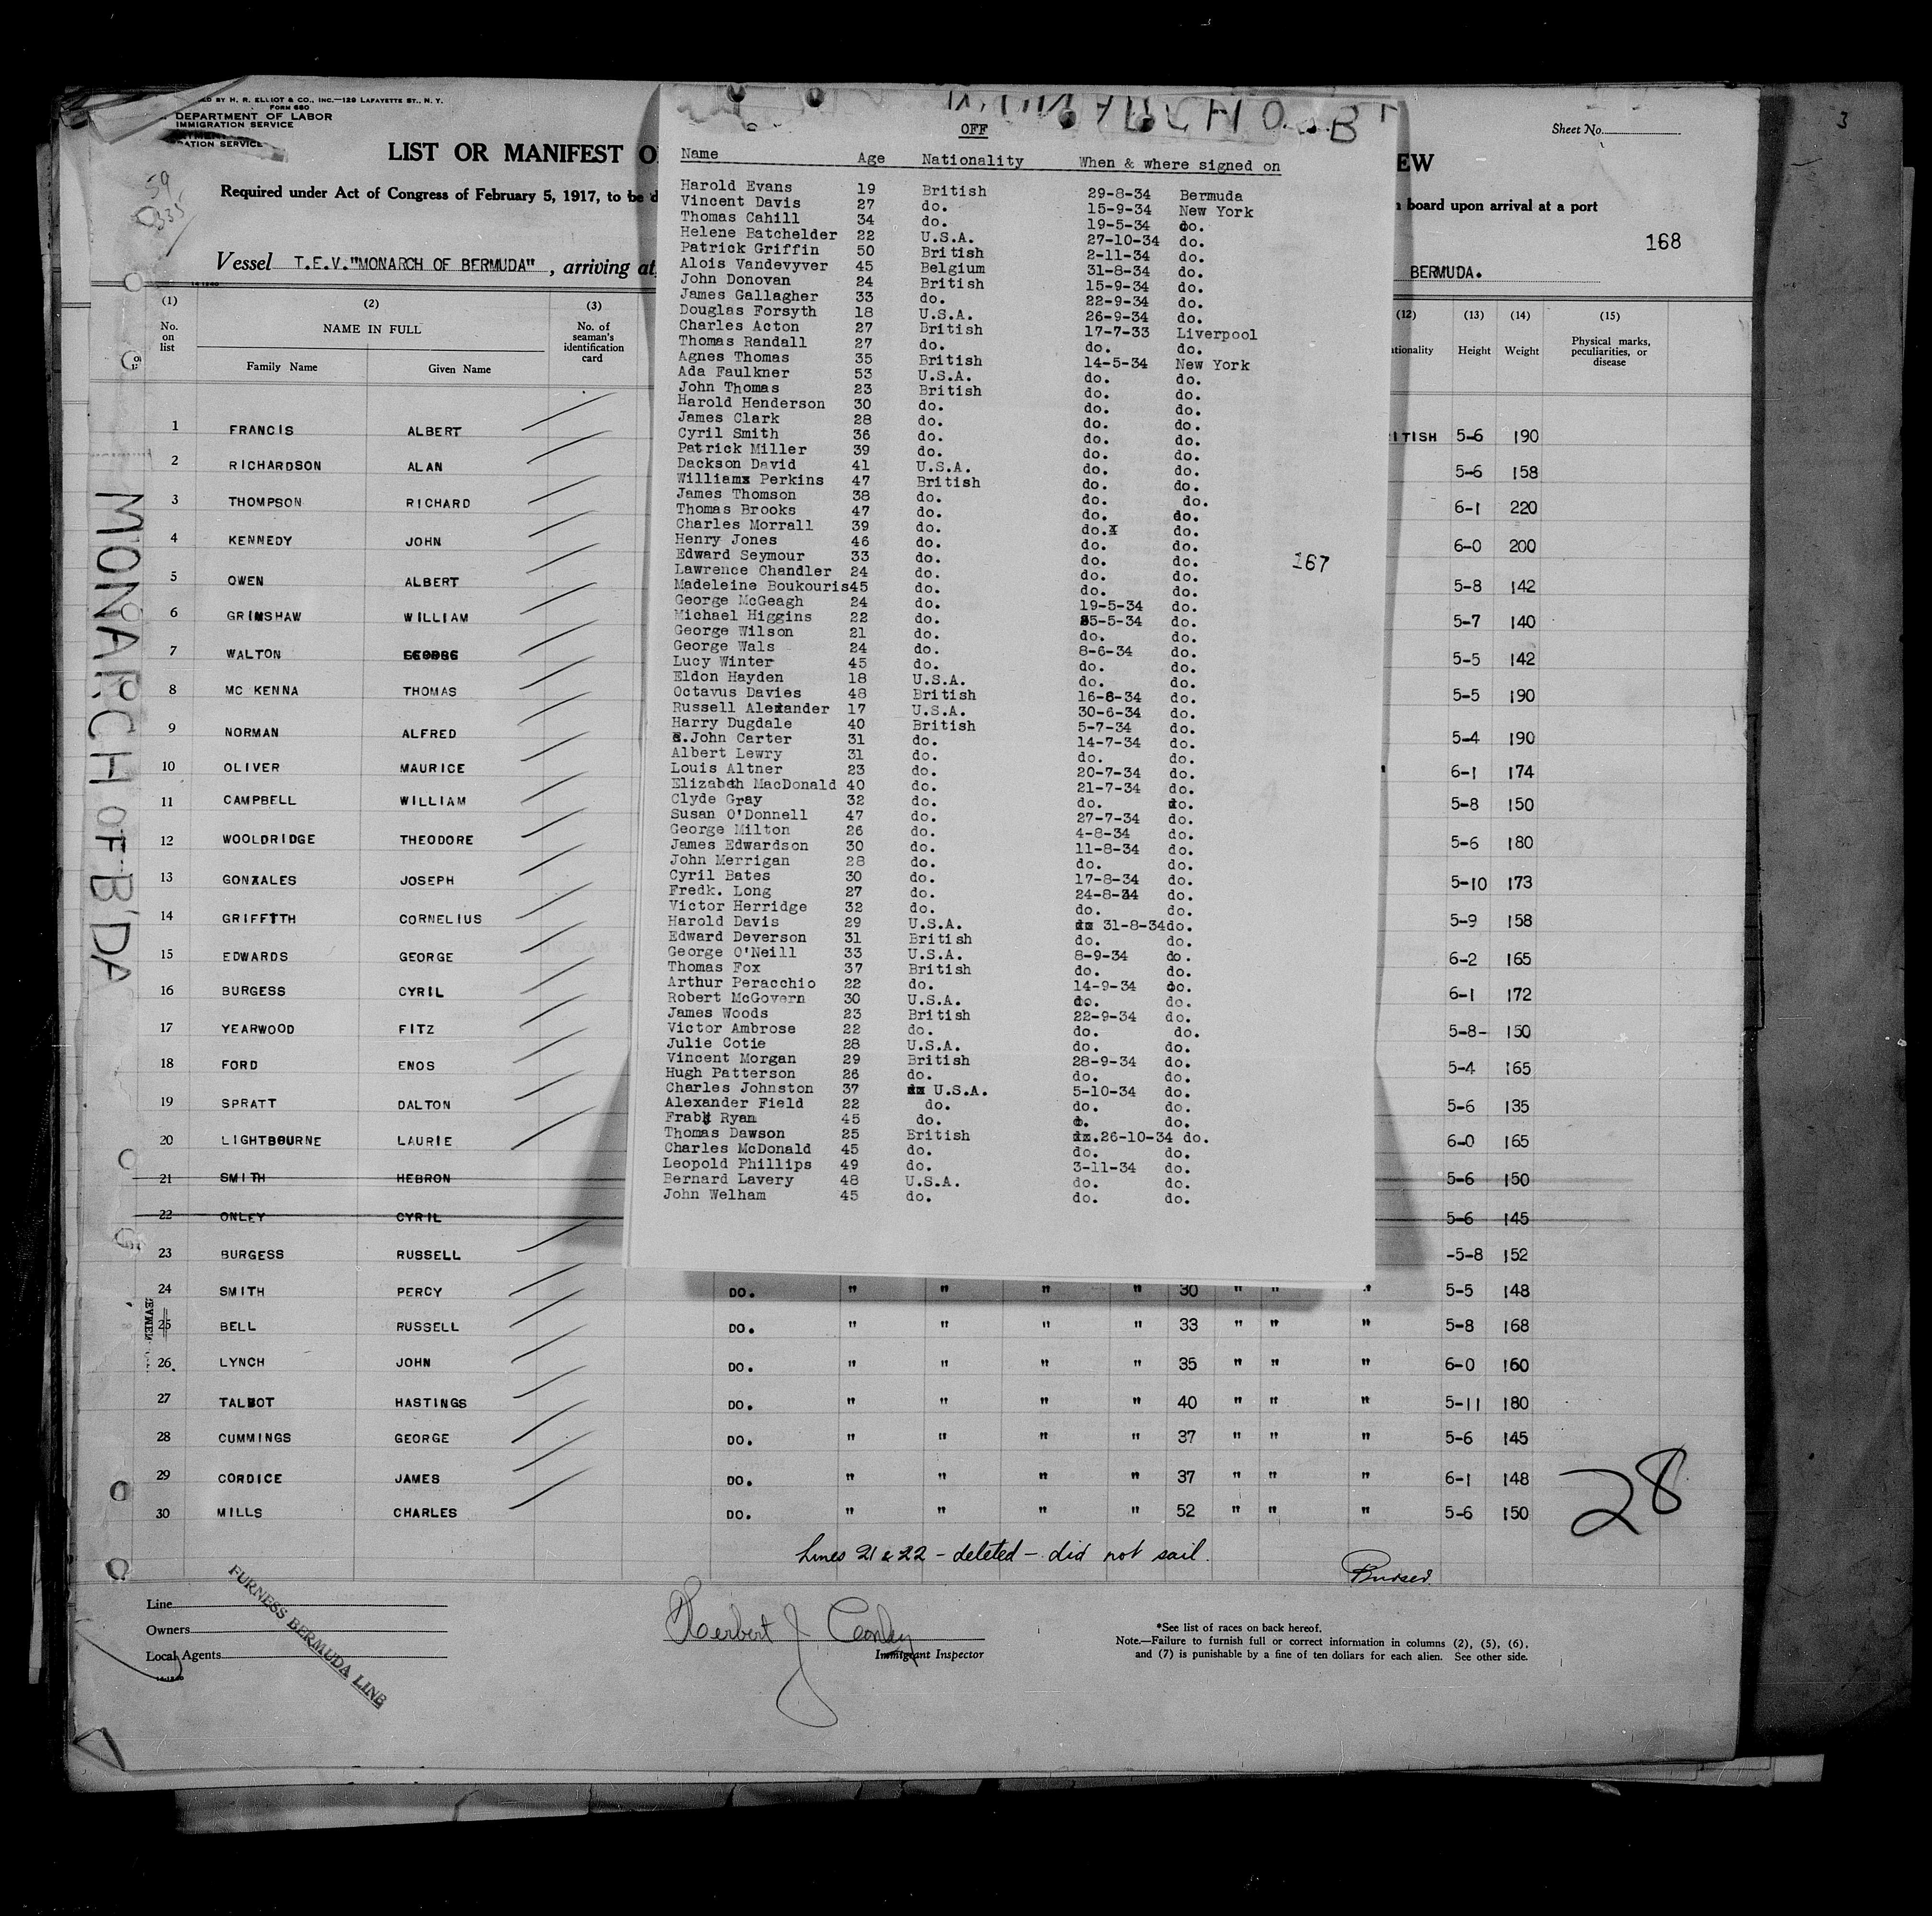 ED BY H. R. ELLIOT & CO., INC.—129 LAFAYETTE ST., N. Y.
FORM 680
DEPARTMENT OF LABOR
IMMIGRATION SERVICE
ATION SERVICE
LIST OR MANIFEST O
EW
Sheet No.
Required under Act of Congress of February 5, 1917, to be d
board upon arrival at a port
168
Vessel T.E.V."MONARCH OF BERMUDA", arriving at
BERMUDA.
MONARCH OF B'DA
OFF
Name Age Nationality When & where signed on
Harold Evans 19 British 29-8-34 Bermuda
Vincent Davis 27 do. 15-9-34 New York
Thomas Cahill 34 do. 19-5-34 do.
Helene Batchelder 22 U.S.A. 27-10-34 do.
Patrick Griffin 50 British 2-11-34 do.
Alois Vandevyver 45 Belgium 31-8-34 do.
John Donovan 24 British 15-9-34 do.
James Gallagher 33 do. 22-9-34 do.
Douglas Forsyth 18 U.S.A. 26-9-34 do.
Charles Acton 27 British 17-7-33 Liverpool
Thomas Randall 27 do. do. do.
Agnes Thomas 35 British 14-5-34 New York
Ada Faulkner 53 U.S.A. do. do.
John Thomas 23 British do. do.
Harold Henderson 30 do. do. do.
James Clark 28 do. do. do.
Cyril Smith 36 do. do. do.
Patrick Miller 39 do. do. do.
Dackson David 41 U.S.A. do. do.
Williamx Perkins 47 British do. do.
James Thomson 38 do. do. do.
Thomas Brooks 47 do. do. do.
Charles Morrall 39 do. do. do.
Henry Jones 46 do. do. do.
Edward Seymour 33 do. do. do.
Lawrence Chandler 24 do. do. do.
Madeleine Boukouris 45 do. do. do.
George McGeagh 24 do. 19-5-34 do.
Michael Higgins 22 do. 25-5-34 do.
George Wilson 21 do. do. do.
George Wals 24 do. 8-6-34 do.
Lucy Winter 45 do. do. do.
Eldon Hayden 18 U.S.A. do. do.
Octavus Davies 48 British 16-6-34 do.
Russell Alexander 17 U.S.A. 30-6-34 do.
Harry Dugdale 40 British 5-7-34 do.
John Carter 31 do. 14-7-34 do.
Albert Lewry 31 do. do. do.
Louis Altner 23 do. 20-7-34 do.
Elizabeth MacDonald 40 do. 21-7-34 do.
Clyde Gray 32 do. do. do.
Susan O'Donnell 47 do. 27-7-34 do.
George Milton 26 do. 4-8-34 do.
James Edwardson 30 do. 11-8-34 do.
John Merrigan 28 do. do. do.
Cyril Bates 30 do. 17-8-34 do.
Fredk. Long 27 do. 24-8-34 do.
Victor Herridge 32 do. do. do.
Harold Davis 29 U.S.A. 31-8-34 do.
Edward Deverson 31 British do. do.
George O'Neill 33 U.S.A. 8-9-34 do.
Thomas Fox 37 British do. do.
Arthur Peracchio 22 do. 14-9-34 do.
Robert McGovern 30 U.S.A. do. do.
James Woods 23 British 22-9-34 do.
Victor Ambrose 22 do. do. do.
Julie Cotie 28 U.S.A. do. do.
Vincent Morgan 29 British 28-9-34 do.
Hugh Patterson 26 do. do. do.
Charles Johnston 37 U.S.A. 5-10-34 do.
Alexander Field 22 do. do. do.
Ryan 45 do. do. do.
Thomas Dawson 25 British 26-10-34 do.
Charles McDonald 45 do. do. do.
Leopold Phillips 49 do. 3-11-34 do.
Bernard Lavery 48 U.S.A. do. do.
John Welham 45 do. do. do.
167
(1) (2) (3) (12) (13) (14) (15)
No. on list NAME IN FULL No. of seaman's identification card ationality Height Weight Physical marks, peculiarities, or disease
Family Name Given Name
1 FRANCIS ALBERT ITISH 5-6 190
2 RICHARDSON ALAN 5-6 158
3 THOMPSON RICHARD 6-1 220
4 KENNEDY JOHN 6-0 200
5 OWEN ALBERT 5-8 142
6 GRIMSHAW WILLIAM 5-7 140
7 WALTON GEORGE 5-5 142
8 MC KENNA THOMAS 5-5 190
9 NORMAN ALFRED 5-4 190
10 OLIVER MAURICE 6-1 174
11 CAMPBELL WILLIAM 5-8 150
12 WOOLDRIDGE THEODORE 5-6 180
13 GONZALES JOSEPH 5-10 173
14 GRIFFITH CORNELIUS 5-9 158
15 EDWARDS GEORGE 6-2 165
16 BURGESS CYRIL 6-1 172
17 YEARWOOD FITZ 5-8- 150
18 FORD ENOS 5-4 165
19 SPRATT DALTON 5-6 135
20 LIGHTBOURNE LAURIE 6-0 165
21 SMITH HEBRON 5-6 150
22 ONLEY CYRIL 5-6 145
23 BURGESS RUSSELL -5-8 152
24 SMITH PERCY DO. " " " " 30 " " " 5-5 148
25 BELL RUSSELL DO. " " " " 33 " " " 5-8 168
26. LYNCH JOHN DO. " " " " 35 " " " 6-0 160
27 TALBOT HASTINGS DO. " " " " 40 " " " 5-11 180
28 CUMMINGS GEORGE DO. " " " " 37 " " " 5-6 145
29 CORDICE JAMES DO. " " " " 37 " " " 6-1 148
30 MILLS CHARLES DO. " " " " 52 " " " 5-6 150
28
Lines 21 & 22 - deleted - did not sail.
Purser.
Line
Owners
Local Agents
FURNESS BERMUDA LINE
Herbert J Conley
Immigrant Inspector
*See list of races on back hereof.
Note.—Failure to furnish full or correct information in columns (2), (5), (6),
and (7) is punishable by a fine of ten dollars for each alien. See other side.